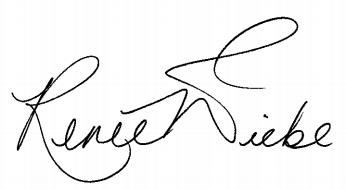 Renee Wiebe